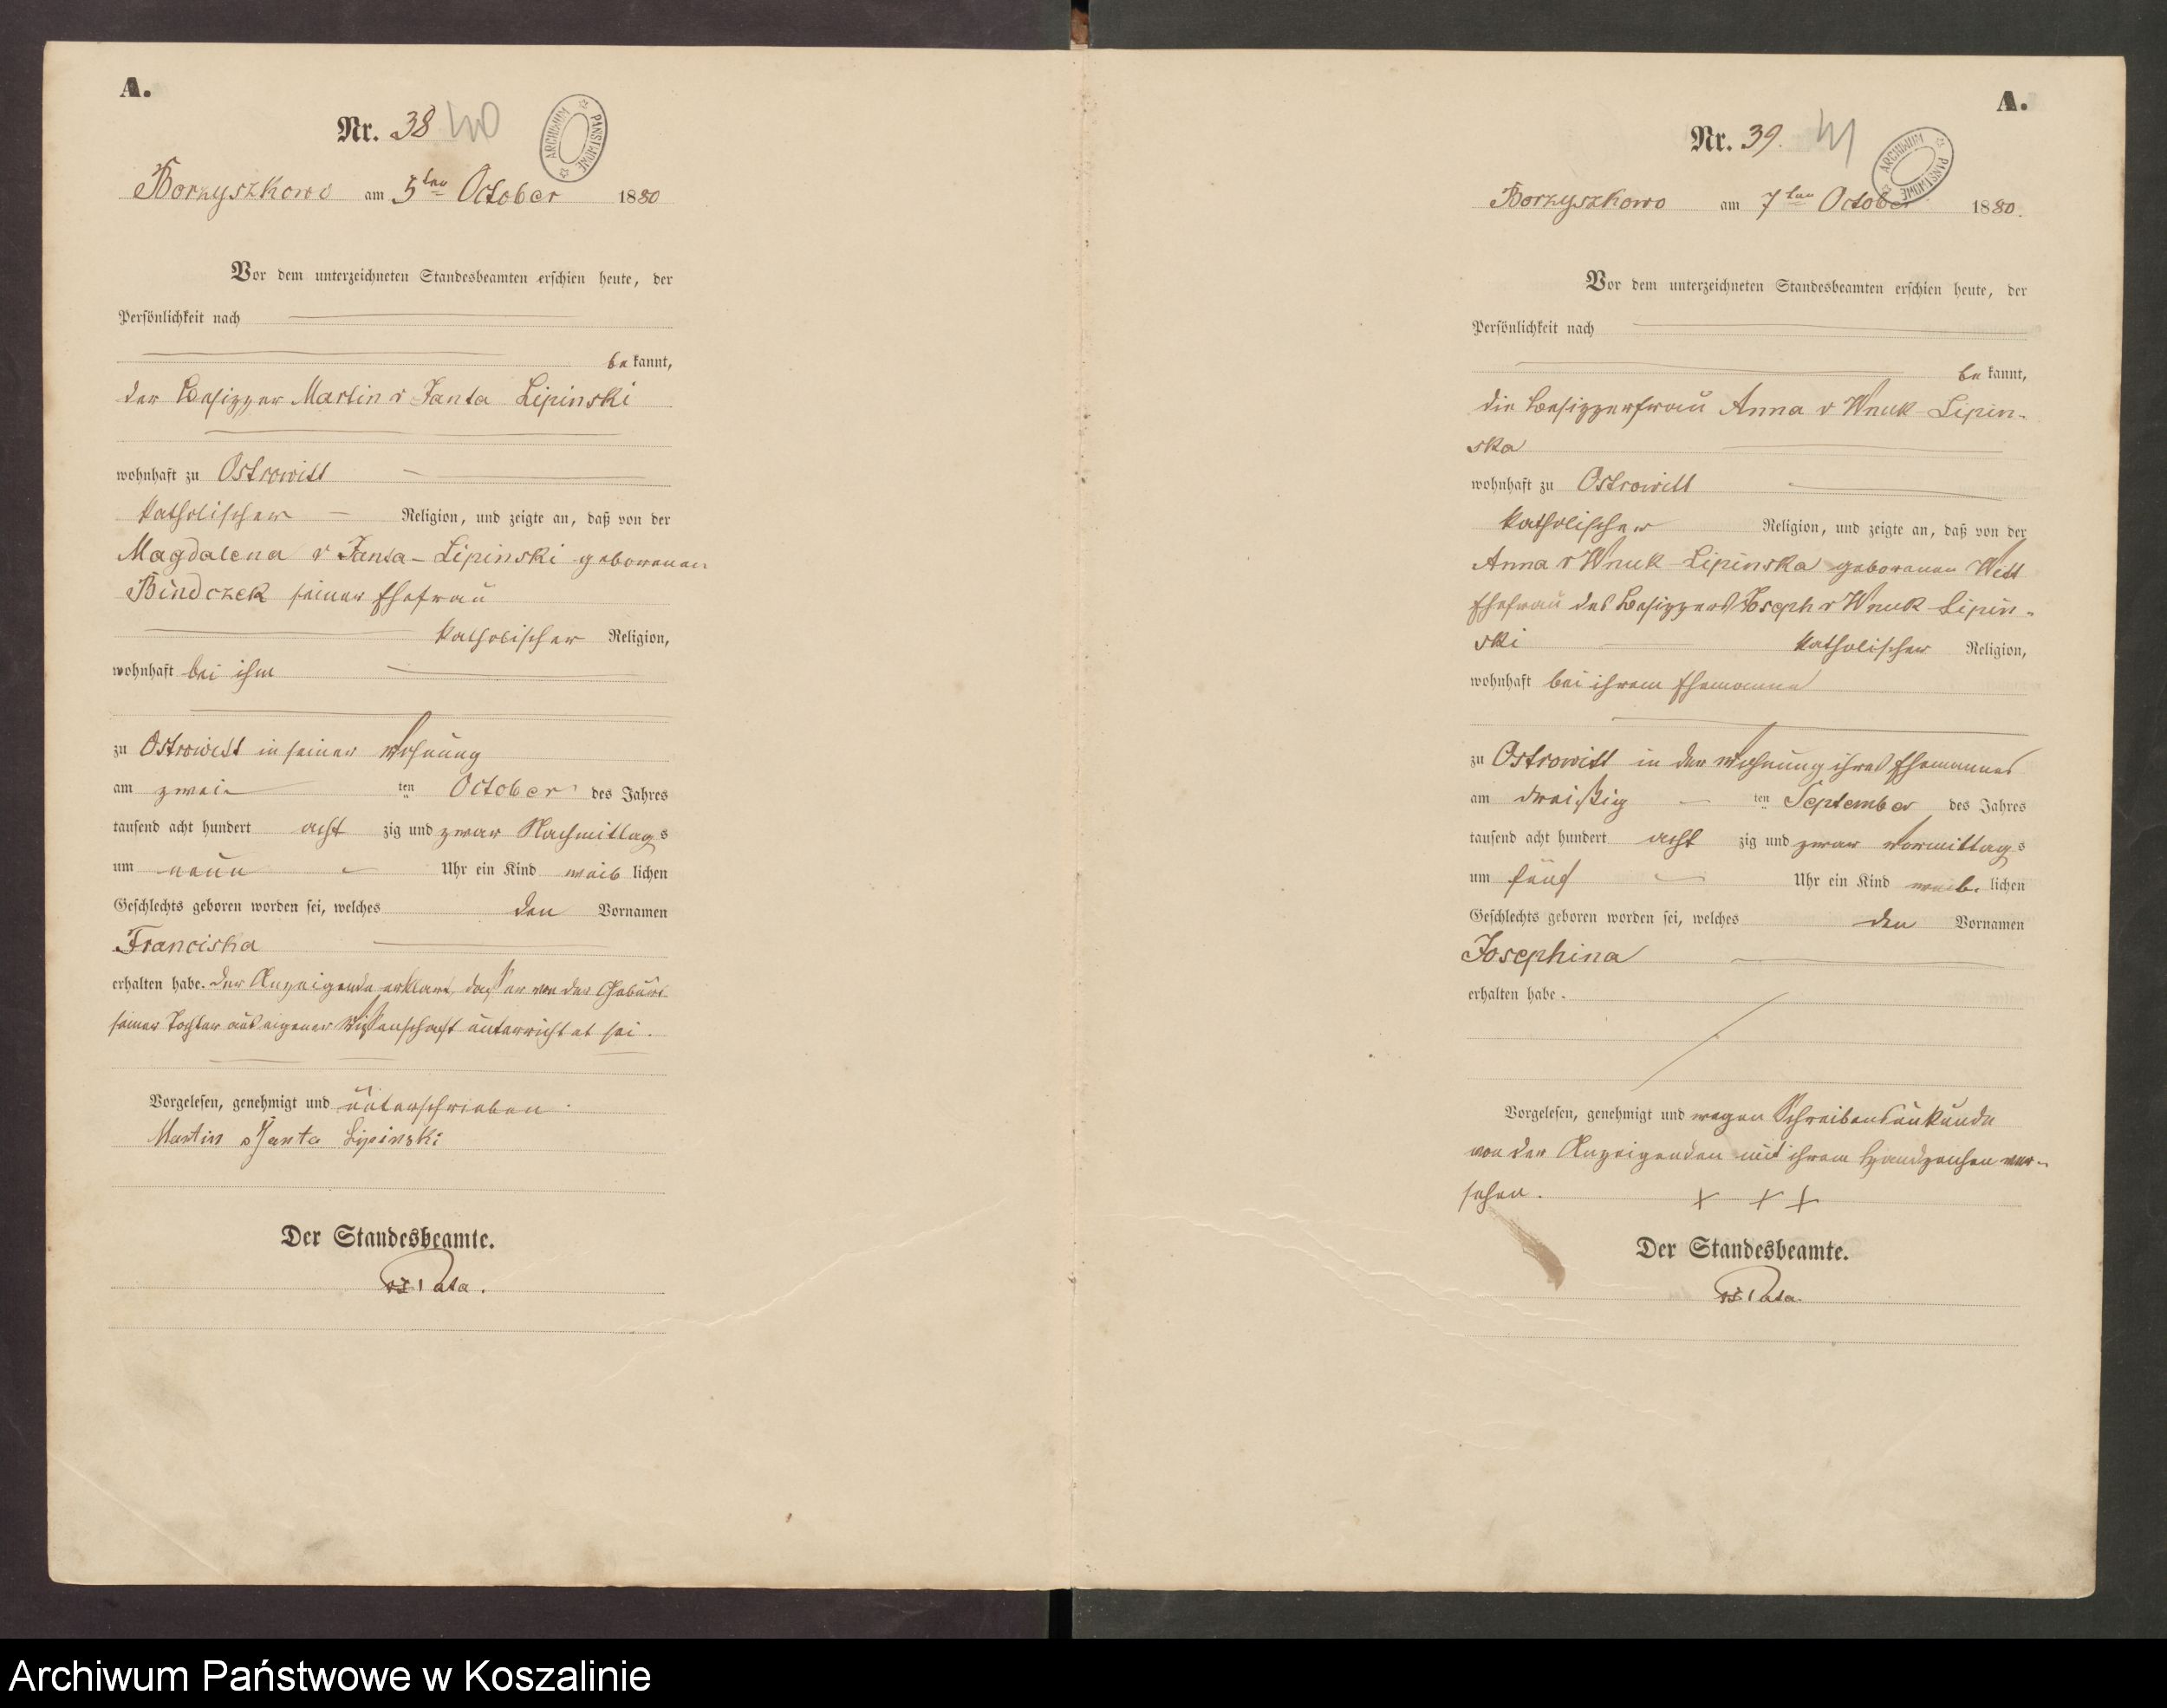 A.
Nr. 38 40
ARCHIWUM PAŃSTWOWE
Borzyszkowo am 5ten October 1880
Vor dem unterzeichneten Standesbeamten erschien heute, der
Persönlichkeit nach
be kannt,
der Besitzer Martin v Janta Lipinski
wohnhaft zu Ostrowitt
katholischer Religion, und zeigte an, daß von der
Magdalena v Janta-Lipinski geborenen
Bindczek seiner Ehefrau
katholischer Religion,
wohnhaft bei ihm
zu Ostrowitt in seiner Wohnung
am zwei ten October des Jahres
tausend acht hundert acht zig und zwar Nachmittags
um neun Uhr ein Kind weib lichen
Geschlechts geboren worden sei, welches den Vornamen
Franciska
erhalten habe. Der Anzeigende erklärt, daß er von der Geburt
seiner Tochter aus eigener Wissenschaft unterrichtet sei.
Vorgelesen, genehmigt und unterschrieben
Martin v Janta Lipinski
Der Standesbeamte.
A.
Nr. 39. 41
ARCHIWUM PAŃSTWOWE
Borzyszkowo am 7ten October 1880.
Vor dem unterzeichneten Standesbeamten erschien heute, der
Persönlichkeit nach
be kannt,
die Besitzerfrau Anna v Wnuk Lipin-
ska
wohnhaft zu Ostrowitt
katholischer Religion, und zeigte an, daß von der
Anna v Wnuk Lipinska geborenen Witt
Ehefrau des Besitzers Joseph v Wnuk Lipin-
ski katholischer Religion,
wohnhaft bei ihrem Ehemanne
zu Ostrowitt in der Wohnung ihres Ehemannes
am dreißig ten September des Jahres
tausend acht hundert acht zig und zwar Vormittags
um fünf Uhr ein Kind weib. lichen
Geschlechts geboren worden sei, welches den Vornamen
Josephina
erhalten habe.
Vorgelesen, genehmigt und wegen Schreibensunkunde
von der Anzeigenden mit ihrem Handzeichen ver-
sehen. + + +
Der Standesbeamte.
Archiwum Państwowe w Koszalinie